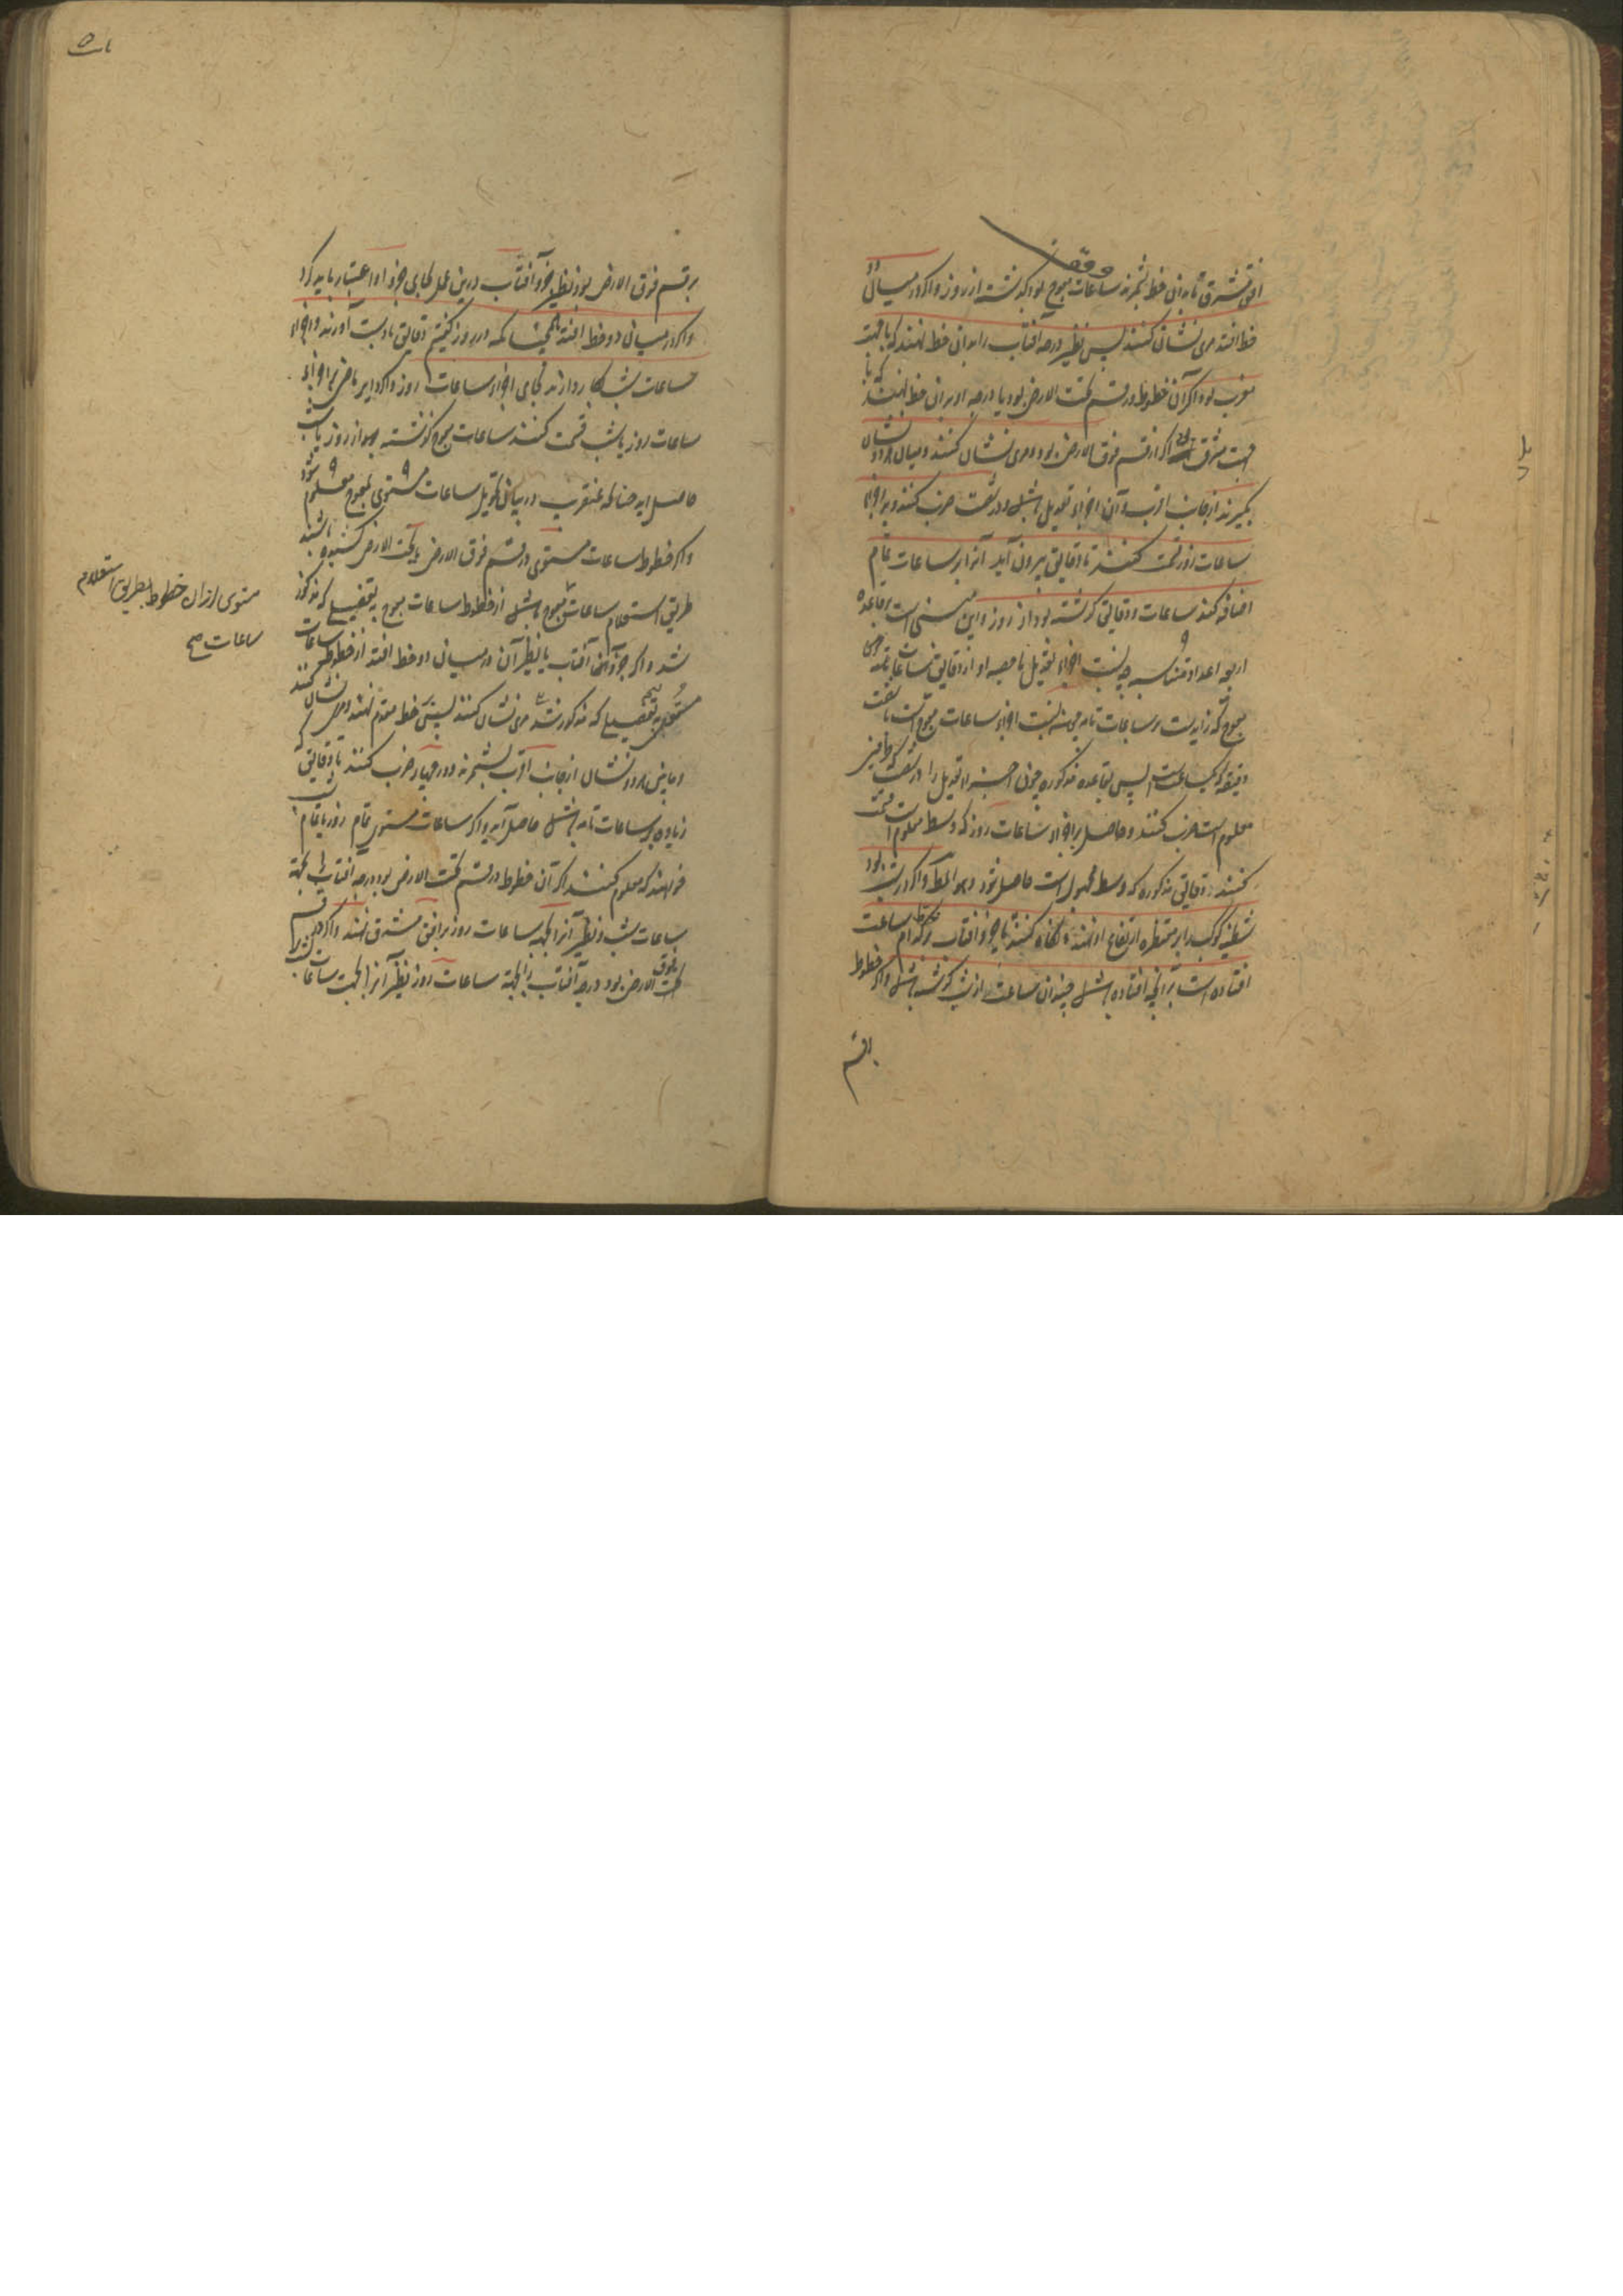 وقف
افق مشرق تا بدان خط بشمرند ساعات معوج بود گذشته از روز و اگر در میان دو
خط افتد مری نشان کنند پس نظیر درجه آفتاب را بدان خط نهند که با جهت
مغرب بود اگر آن خطوط در قسم تحت الارض بود یا درجه او بران خط نهند که با
جهت مشرق اگر از قسم فوق الارض بود و مری نشان کنند و میان هر دو نشان
بگیرند از جانب اقرب و آن اجزاء تعدیل باشد و در شصت ضرب کنند و بر اجزاء
ساعات روز قسمت کنند تا دقایق بیرون آید آنرا بر ساعات تمام
اضافه کنند ساعات و دقایق گذشته بود از روز و این مبنی است بر قاعده
اربعه اعداد متناسبه چه نسبت اجزاء تعدیل با حصه او از دقایق ساعات
معوج که زاید است بر ساعات تامه همچو نسبت اجزاء ساعات معوج است با شصت
دقیقه که یکساعت است پس بقاعده مذکوره چون اجزاء تعدیل را در شصت که طرفین
معلوم است ضرب کنند و حاصل بر اجزاء ساعات روز که وسط معلوم است قسمت
کنند دقایق مذکوره که وسط مجهول است حاصل شود و هو المط و اگر در شب بود
شظیه کوکب را بر مقنطره ارتفاع او نهند و نگاه کنند تا جزو آفتاب بر کدام خط ساعت
افتاده است بر آنچه افتاده باشد چندان ساعت از شب گذشته باشد و اگر خطوط
بر قسم
بر قسم فوق الارض بود نظیر جزو آفتاب درین عمل بجای جزو او اعتبار باید کرد
و اگر در میان دو خط افتد همچنانکه در روز گفتیم دقایق با دست آورند و اجزاء
ساعات شب بکار دارند بجای اجزاء ساعات روز و اگر دایر ماضی بر اجزاء
ساعات روز یا شب قسمت کنند ساعات معوج گذشته بود از روز یا شب
حاصل آید چنانکه عنقریب در بیان تحویل ساعات مستوی بمعوج معلوم شود
و اگر خطوط ساعات مستوی در قسم فوق الارض یا تحت الارض کشیده باشند
طریق استعلام ساعات معوج باشد از خطوط ساعات معوج بتفصیلی که مذکور
شد و اگر جزو آفتاب یا نظیر آن در میان دو خط افتد از خطوط ساعات
مستوی بتفصیلی که مذکور شد مری نشان کنند پس بر خط مقدم نهند و مری نشان کنند
و مابین هر دو نشان از جانب اقرب بشمرند و در چهار ضرب کنند تا دقایق که
زیاده بر ساعات تامه باشد حاصل آید و اگر ساعات مستوی تمام روز یا تمام شب
خواهند که معلوم کنند اگر آن خطوط در قسم تحت الارض بود درجه آفتاب را بجهة
ساعات شب و نظیر آنرا بجهة ساعات روز بر افق مشرق نهند و اگر در قسم
فوق الارض بود درجه آفتاب را بجهة ساعات روز و نظیر آنرا بجهت ساعات
مستوی از ان خطوط بطریق استعلام
ساعات صح